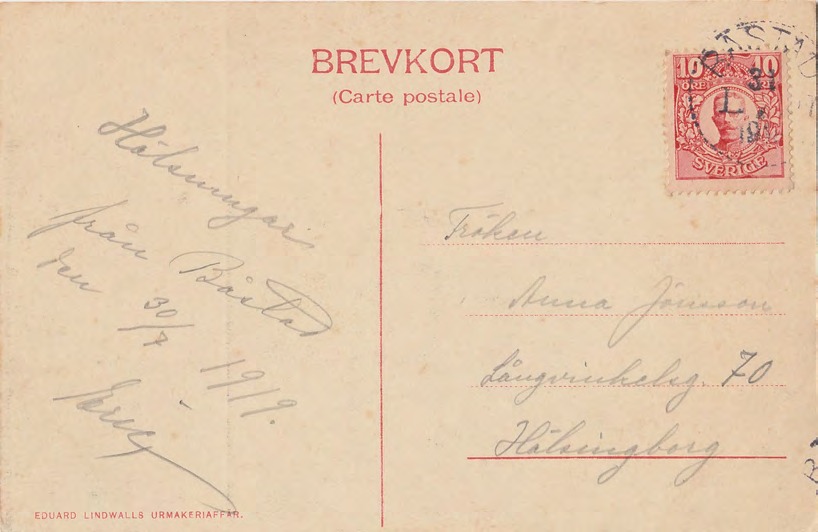 BREVKORT
(Carte postale)
BÅSTAD
31
7
10 10
ÖRE
SVERIGE
Hälsningar
från Båstad
den 30/7 1919.
Eric
Fröken
Anna Jönsson
Långvinkelsg. 70
Hälsingborg
EDUARD LINDWALLS URMAKERIAFFÄR.